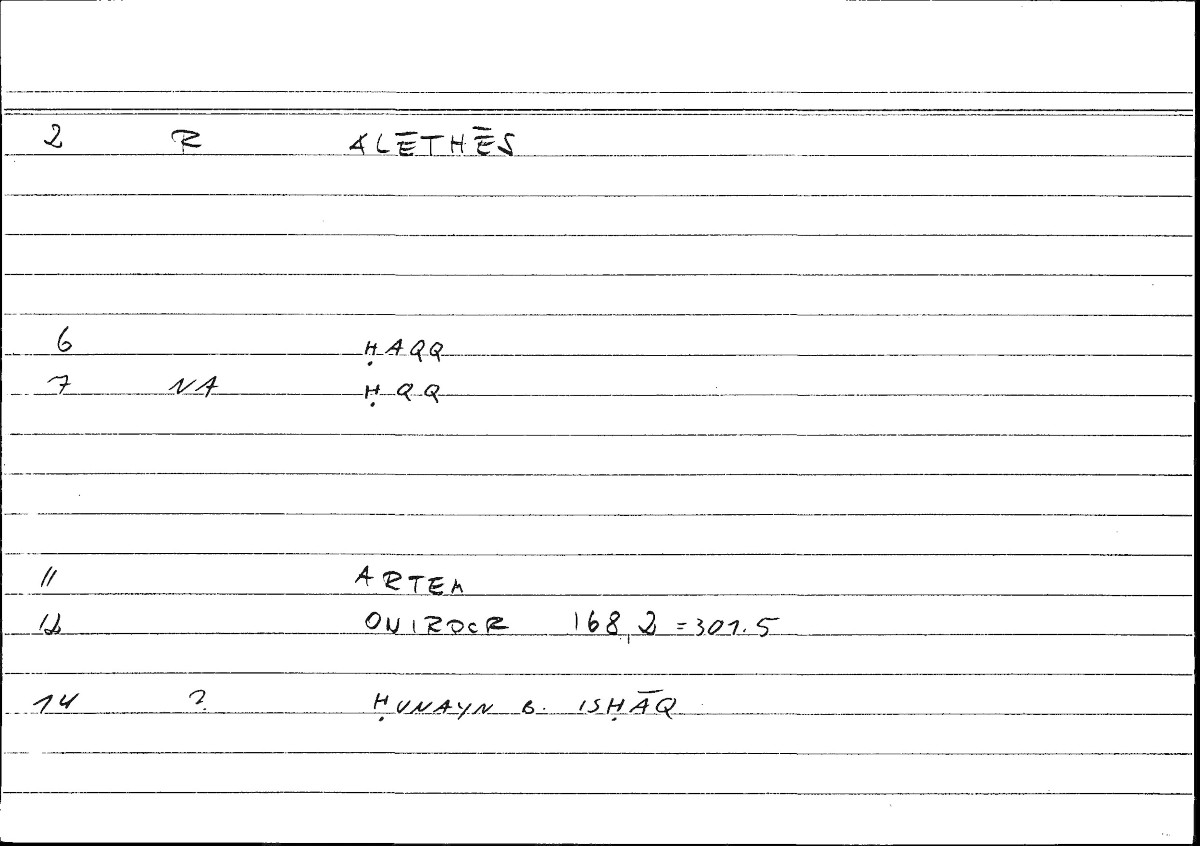 2 R ALĒTHĒS
6 ḤAQQ
7 NA ḤQQ
11 ARTEM
12 ONIROCR 168,2 = 301.5
14 ? ḤUNAYN B. ISḤĀQ